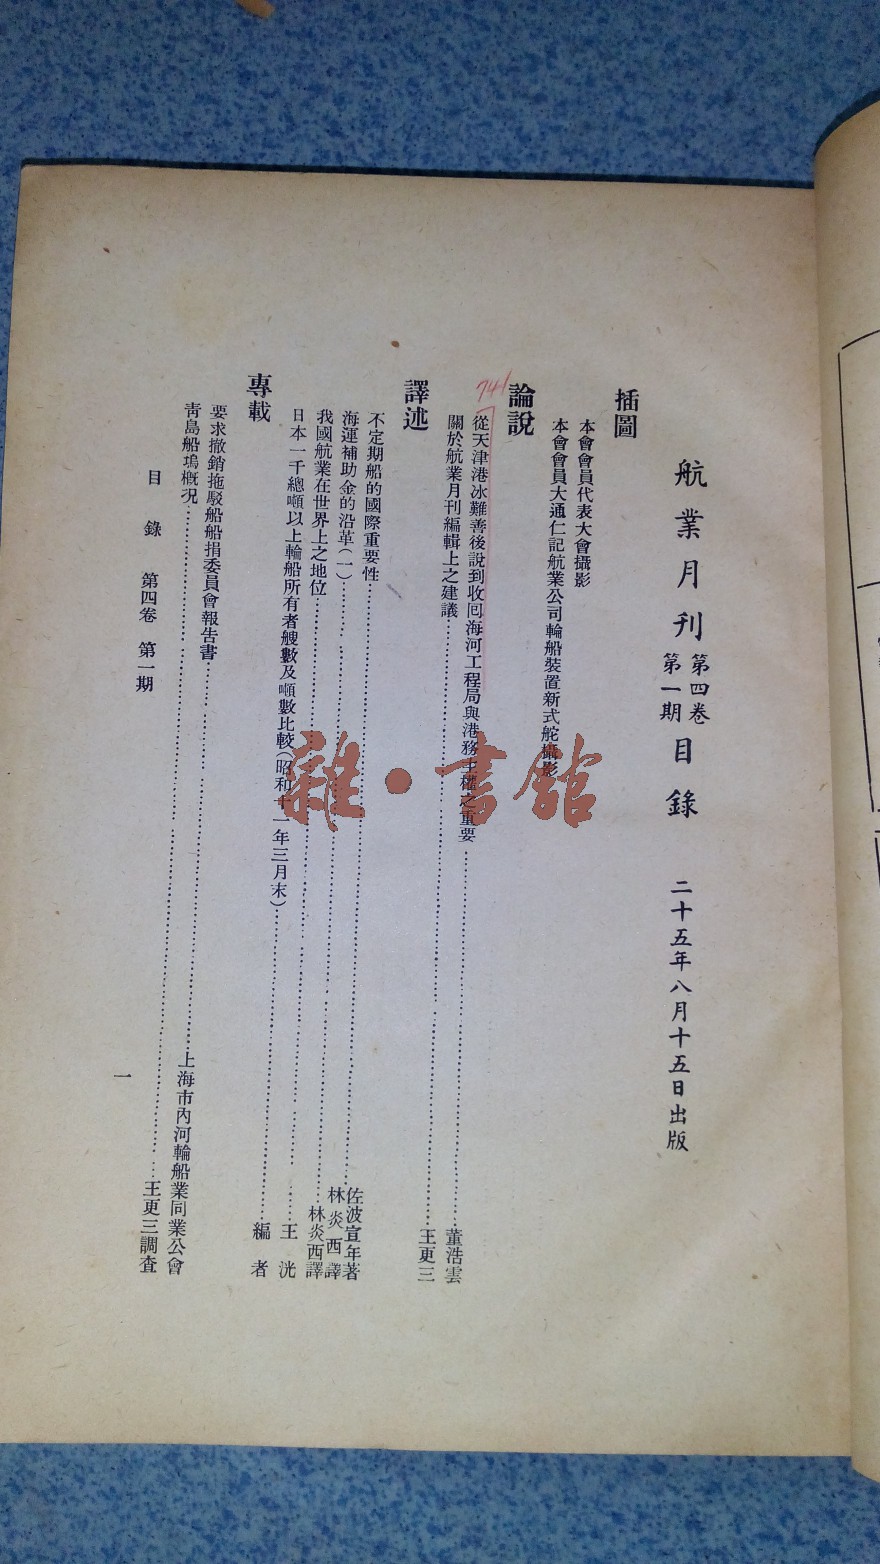 航業月刊 第四卷第一期 目錄 二十五年八月十五日出版
插圖
本會會員代表大會攝影
本會會員大通仁記航業公司輪船裝置新式舵攝影
論說
741
從天津港冰難善後說到收囘海河工程局與港務主權之重要……董浩雲
關於航業月刊編輯上之建議……王更三
譯述
不定期船的國際重要性……佐波宣年著 林炎西譯
海運補助金的沿革(一)……林炎西譯
我國航業在世界上之地位……王洸
日本一千總噸以上輪船所有者艘數及噸數比較(昭和十一年三月末)……編者
專載
要求撤銷拖駁船船捐委員會報告書……上海市內河輪船業同業公會
靑島船塢槪况……王更三調査
目錄 第四卷 第一期
一
雜·書館